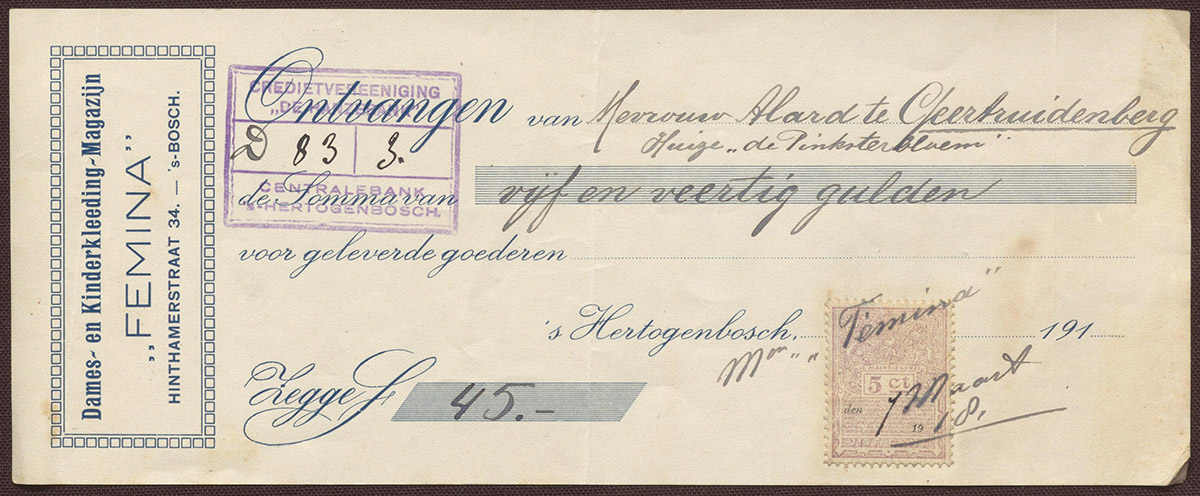 Dames- en Kinderkleeding-Magazijn
„FEMINA”
HINTHAMERSTRAAT 34. — 's-BOSCH.
CREDIETVEREENIGING
D 83 3.
CENTRALEBANK
's-HERTOGENBOSCH.
Ontvangen van Mevrouw Alard te Geertruidenberg
Huize „de Pinksterbloem”
de Somma van vijf en veertig gulden
voor geleverde goederen
's Hertogenbosch, 191
Mon „Femina”
5 ct
den 7 Maart
19 18.
Zegge f 45.-